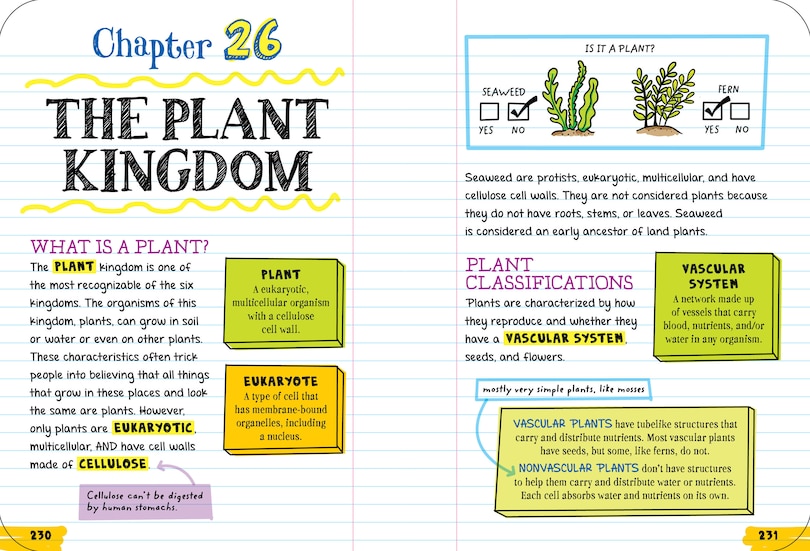 Chapter 26
THE PLANT
KINGDOM
WHAT IS A PLANT?
The PLANT kingdom is one of
the most recognizable of the six
kingdoms. The organisms of this
kingdom, plants, can grow in soil
or water or even on other plants.
These characteristics often trick
people into believing that all things
that grow in these places and look
the same are plants. However,
only plants are EUKARYOTIC,
multicellular, AND have cell walls
made of CELLULOSE.
PLANT
A eukaryotic,
multicellular organism
with a cellulose
cell wall.
EUKARYOTE
A type of cell that
has membrane-bound
organelles, including
a nucleus.
Cellulose can't be digested
by human stomachs.
230
IS IT A PLANT?
SEAWEED
YES NO
FERN
YES NO
Seaweed are protists, eukaryotic, multicellular, and have
cellulose cell walls. They are not considered plants because
they do not have roots, stems, or leaves. Seaweed
is considered an early ancestor of land plants.
PLANT
CLASSIFICATIONS
Plants are characterized by how
they reproduce and whether they
have a VASCULAR SYSTEM,
seeds, and flowers.
VASCULAR
SYSTEM
A network made up
of vessels that carry
blood, nutrients, and/or
water in any organism.
mostly very simple plants, like mosses
VASCULAR PLANTS have tubelike structures that
carry and distribute nutrients. Most vascular plants
have seeds, but some, like ferns, do not.
NONVASCULAR PLANTS don't have structures
to help them carry and distribute water or nutrients.
Each cell absorbs water and nutrients on its own.
231